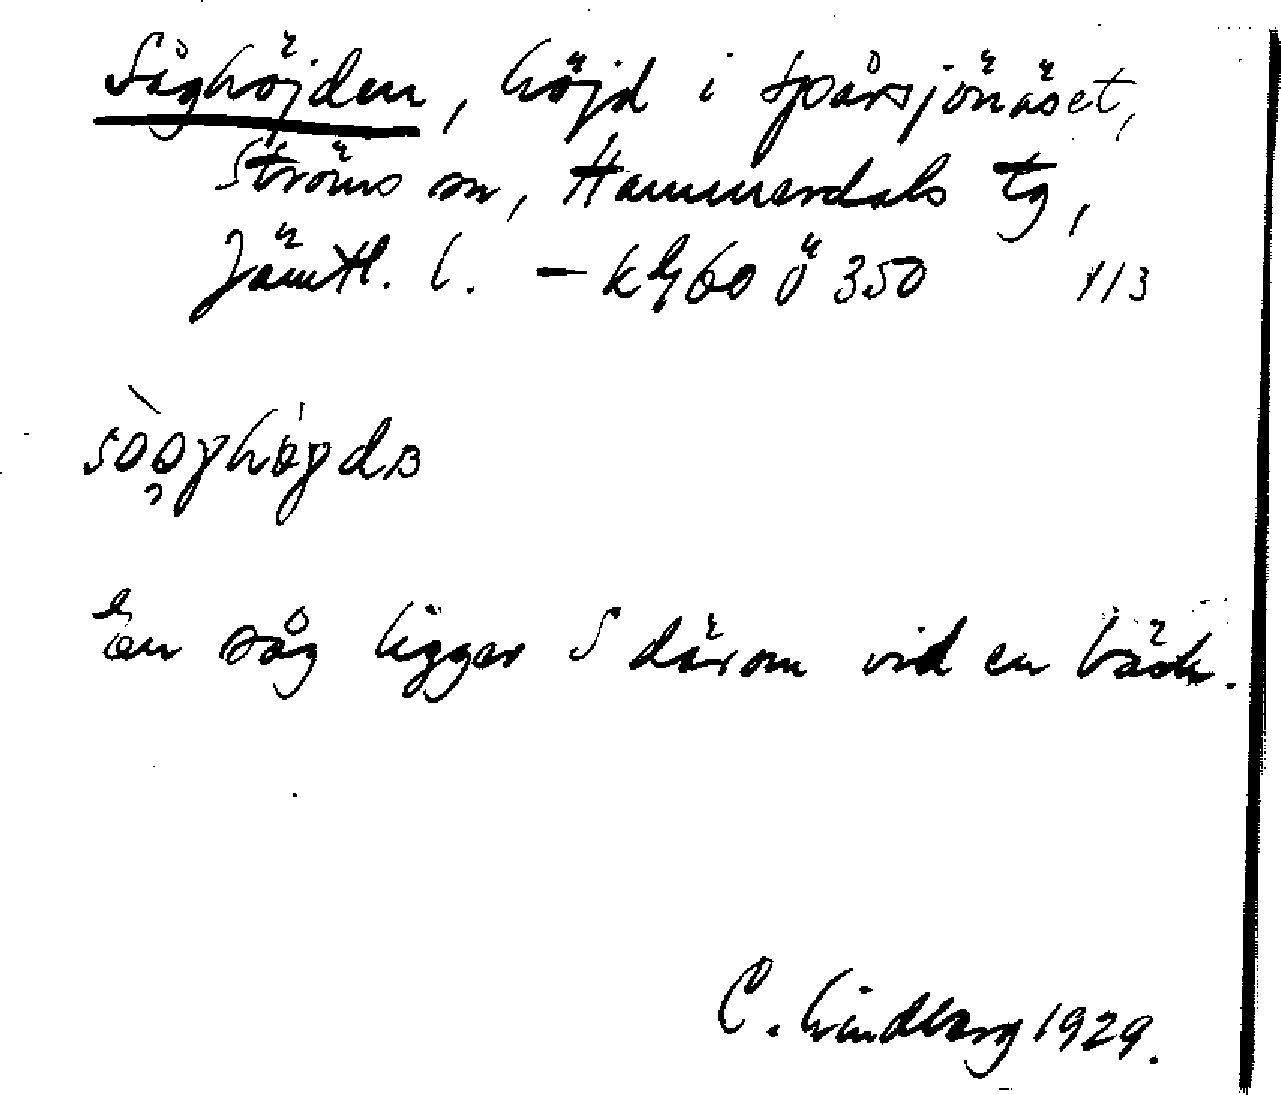 Såghöjden, höjd i Spårsjönäset,
Ströms sn, Hammerdals tg,
Jämtl. l. - k bl 60 ö 350 113
En såg ligger S därom vid en bäck.
C. Lindberg 1929.